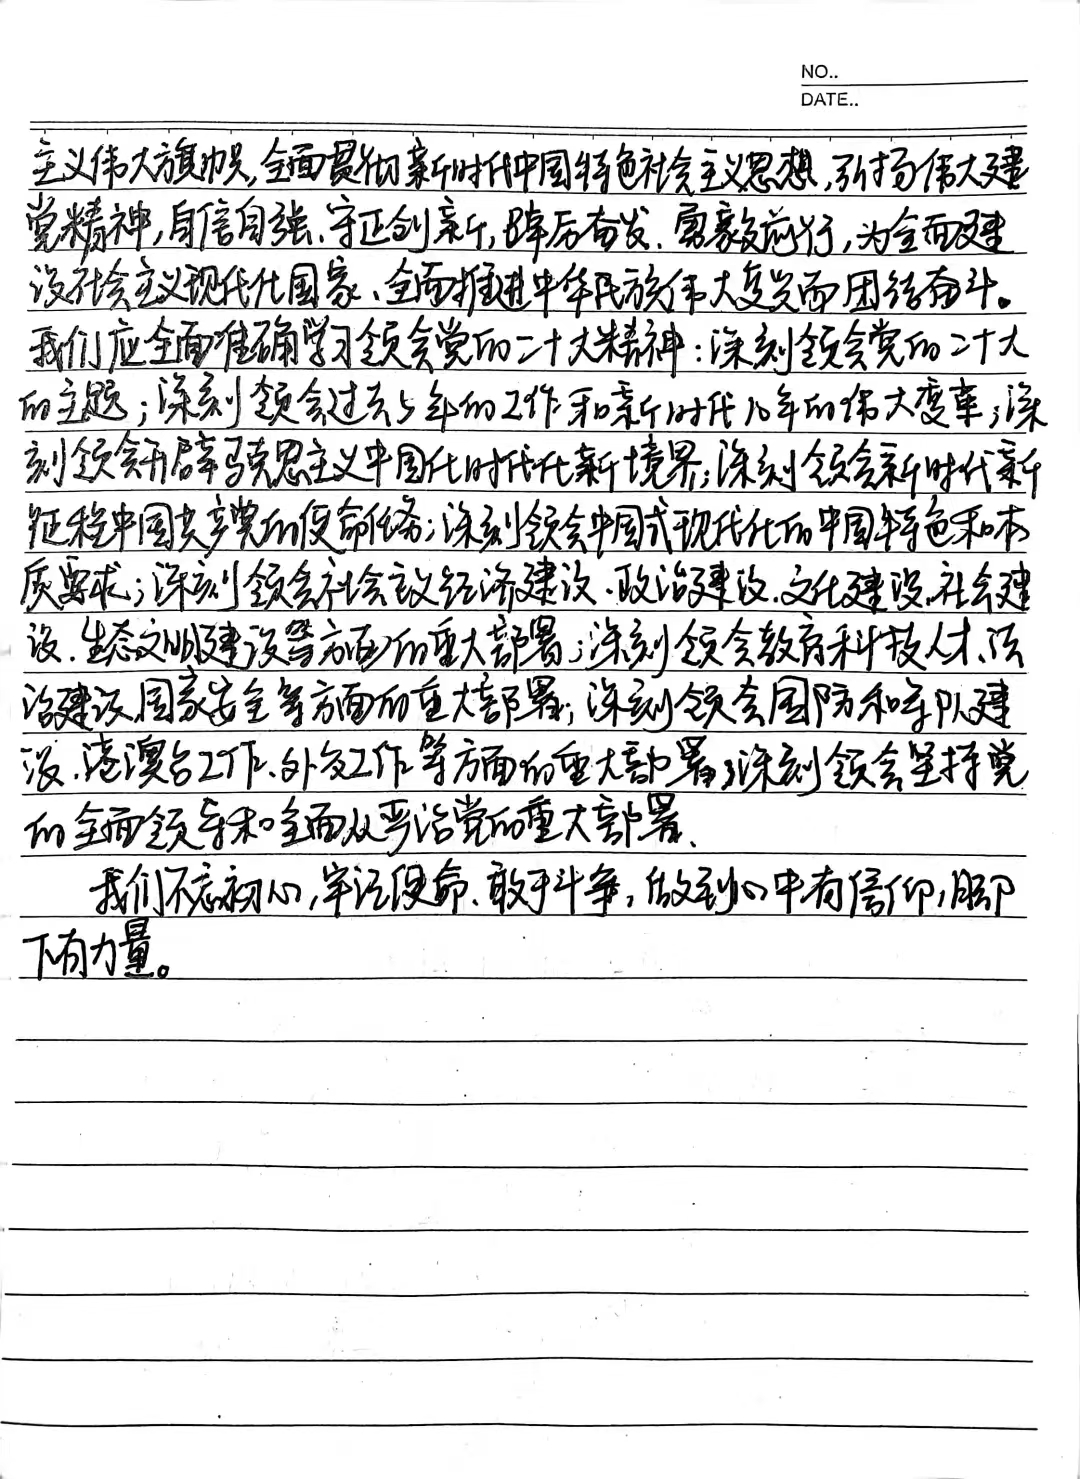 NO..
DATE..
主义伟大旗帜,全面贯彻新时代中国特色社会主义思想,弘扬伟大建
党精神,自信自强、守正创新,踔厉奋发、勇毅前行,为全面建
设社会主义现代化国家、全面推进中华民族伟大复兴而团结奋斗。
我们应全面准确学习领会党的二十大精神:深刻领会党的二十大
的主题;深刻领会过去5年的工作和新时代10年的伟大变革;深
刻领会开辟马克思主义中国化时代化新境界;深刻领会新时代新
征程中国共产党的使命任务;深刻领会中国式现代化的中国特色和本
质要求;深刻领会社会主义经济建设、政治建设、文化建设、社会建
设、生态文明建设等方面的重大部署;深刻领会教育科技人才、法
治建设、国家安全等方面的重大部署;深刻领会国防和军队建
设、港澳台工作、外交工作等方面的重大部署;深刻领会坚持党
的全面领导和全面从严治党的重大部署.
我们不忘初心,牢记使命、敢于斗争,做到心中有信仰,脚
下有力量。